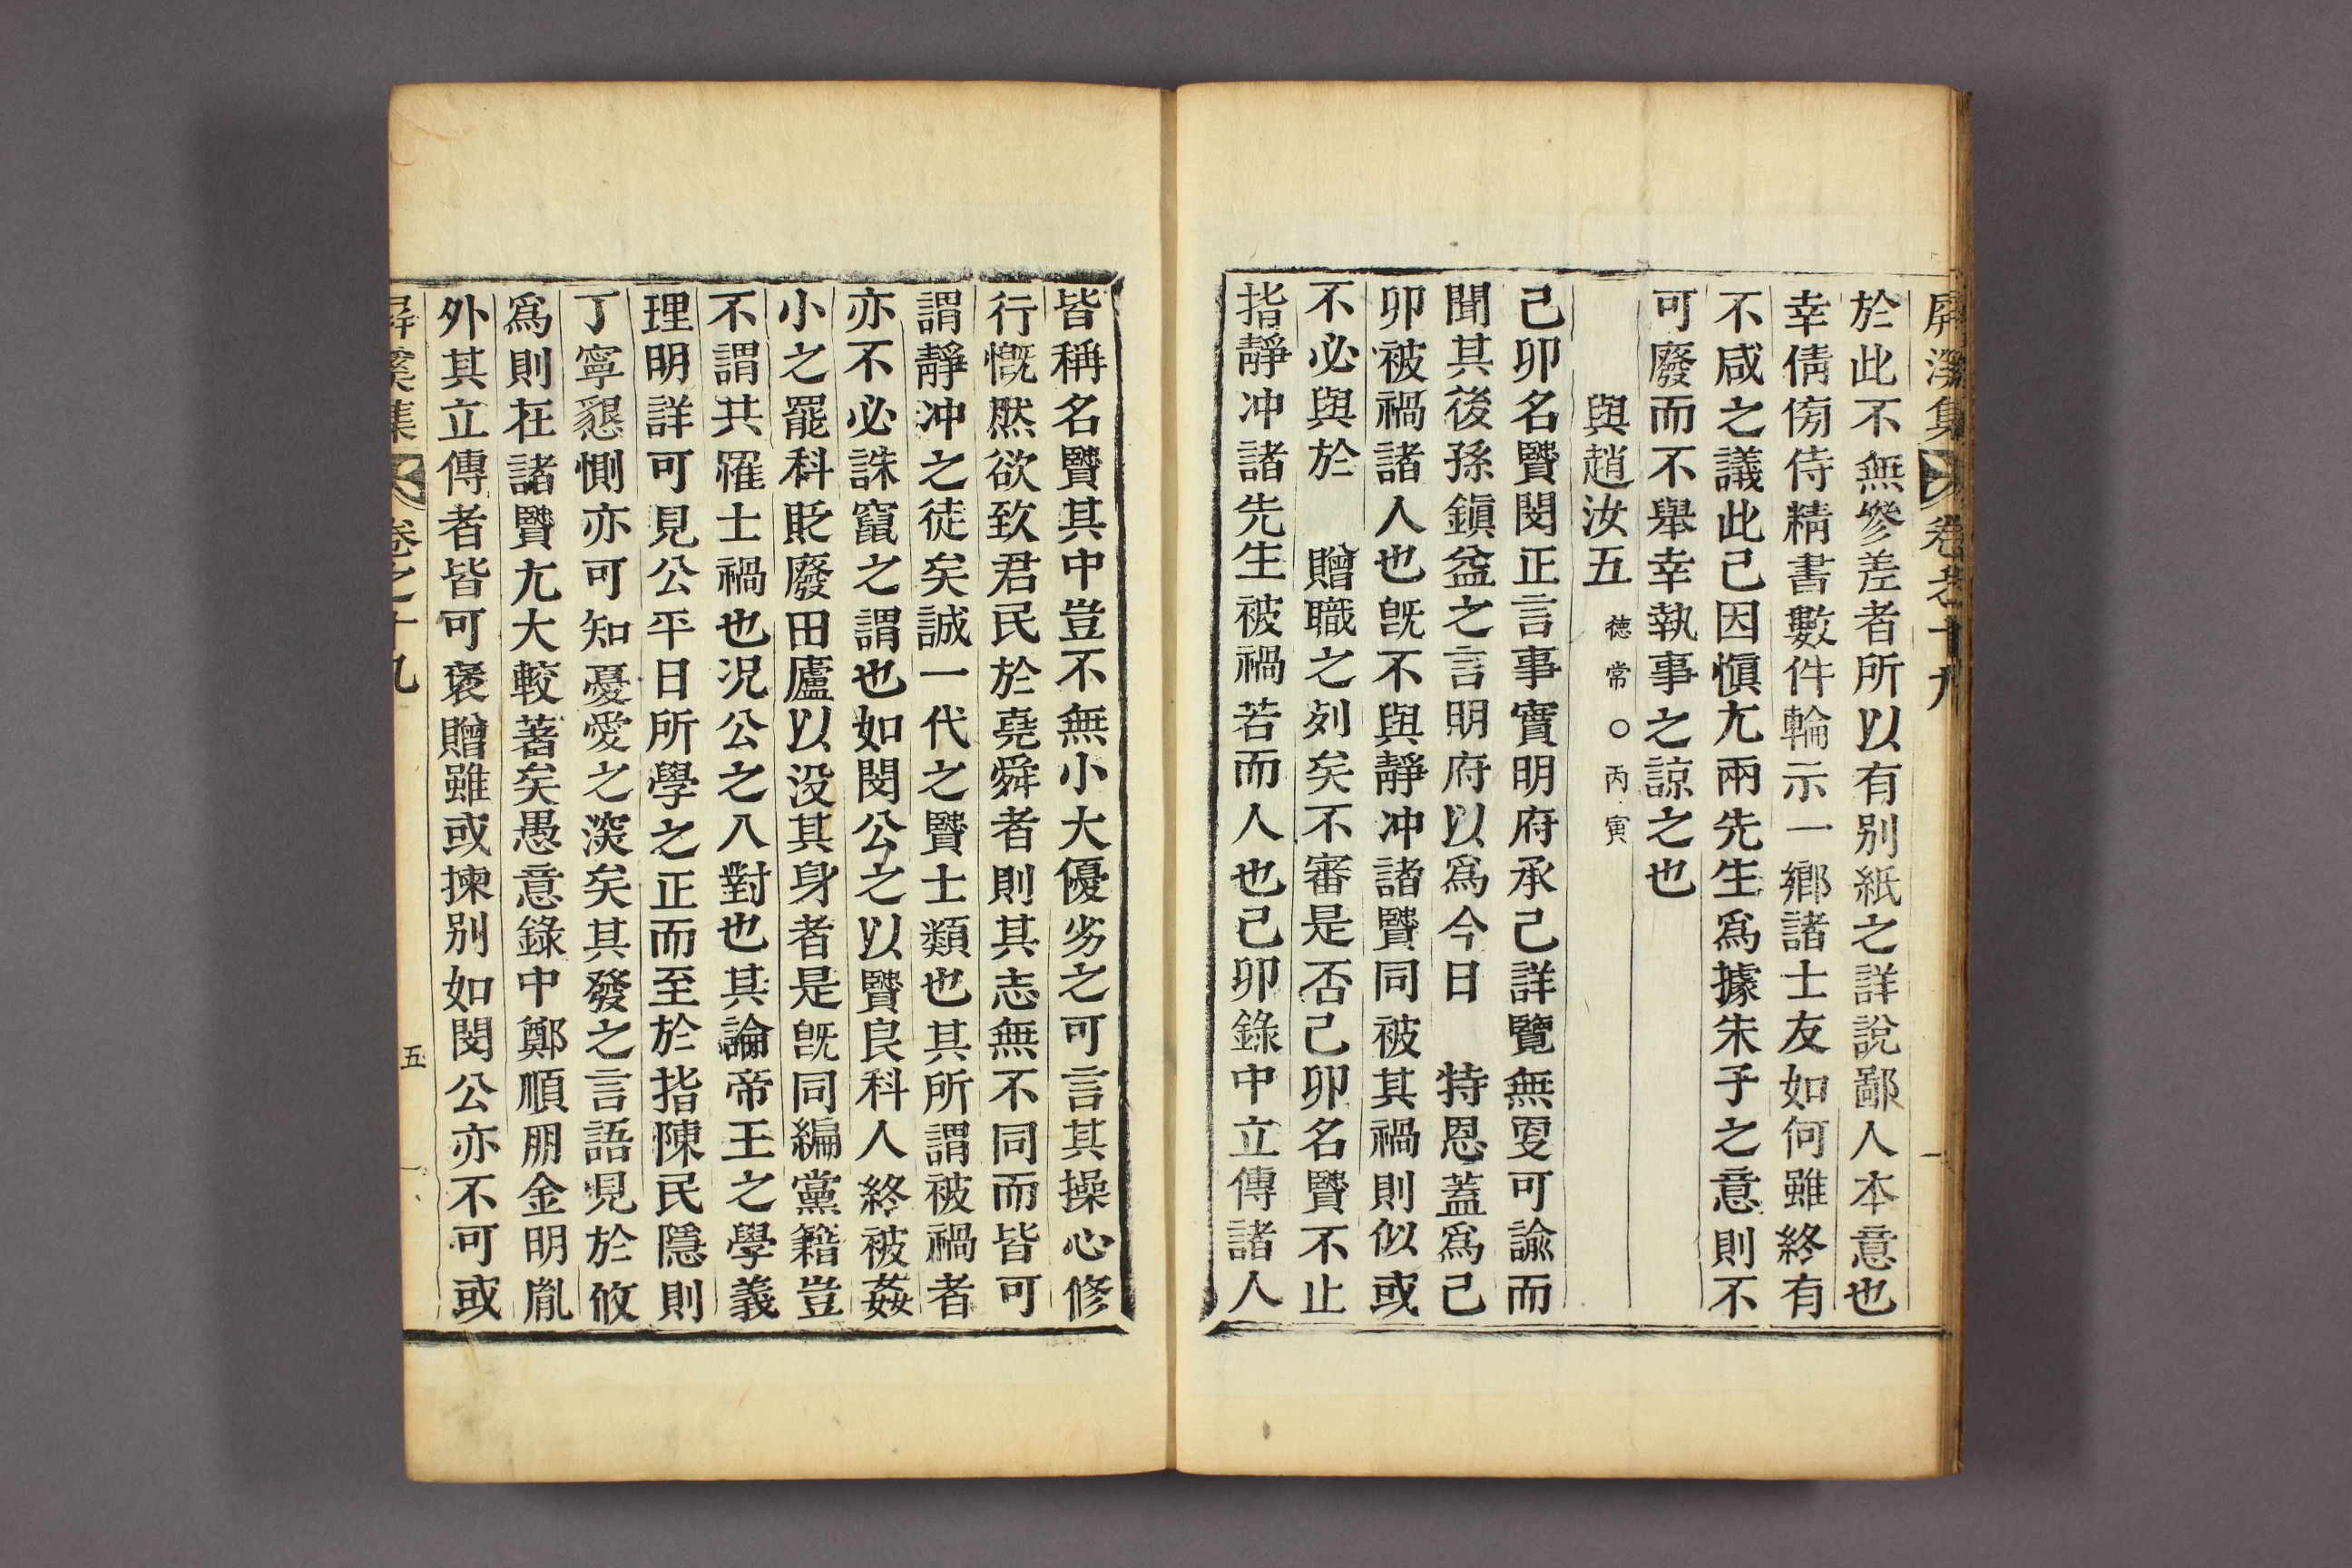 屛溪集 卷之十九
於此不無慘差者所以有別紙之詳說鄙人本意也
幸倩傍侍精書數件輪示一鄕諸士友如何雖終有
不咸之議此已因愼尤兩先生爲據朱子之意則不
可廢而不舉幸執事之諒之也
與趙汝五 德常○丙寅
己卯名賢閔正言事實明府承己詳覽無更可諭而
聞其後孫鎭益之言明府以爲今日 特恩蓋爲己
卯被禍諸人也旣不與靜冲諸賢同被其禍則似或
不必與於 贈職之列矣不審是否己卯名賢不止
指靜冲諸先生被禍若而人也己卯錄中立傳諸人
皆稱名賢其中豈不無小大優劣之可言其操心修
行慨然欲致君民於堯舜者則其志無不同而皆可
謂靜冲之徒矣誠一代之賢士類也其所謂被禍者
亦不必誅竄之謂也如閔公之以賢良科人終被姦
小之罷科貶廢田廬以没其身者是旣同編黨籍豈
不謂共罹士禍也况公之入對也其論帝王之學義
理明詳可見公平日所學之正而至於指陳民隱則
丁寧懇惻亦可知憂愛之深矣其發之言語見於攸
爲則在諸賢尤大較著矣愚意錄中鄭順朋金明胤
外其立傳者皆可褒贈雖或揀別如閔公亦不可或
屛溪集 卷之十九 五